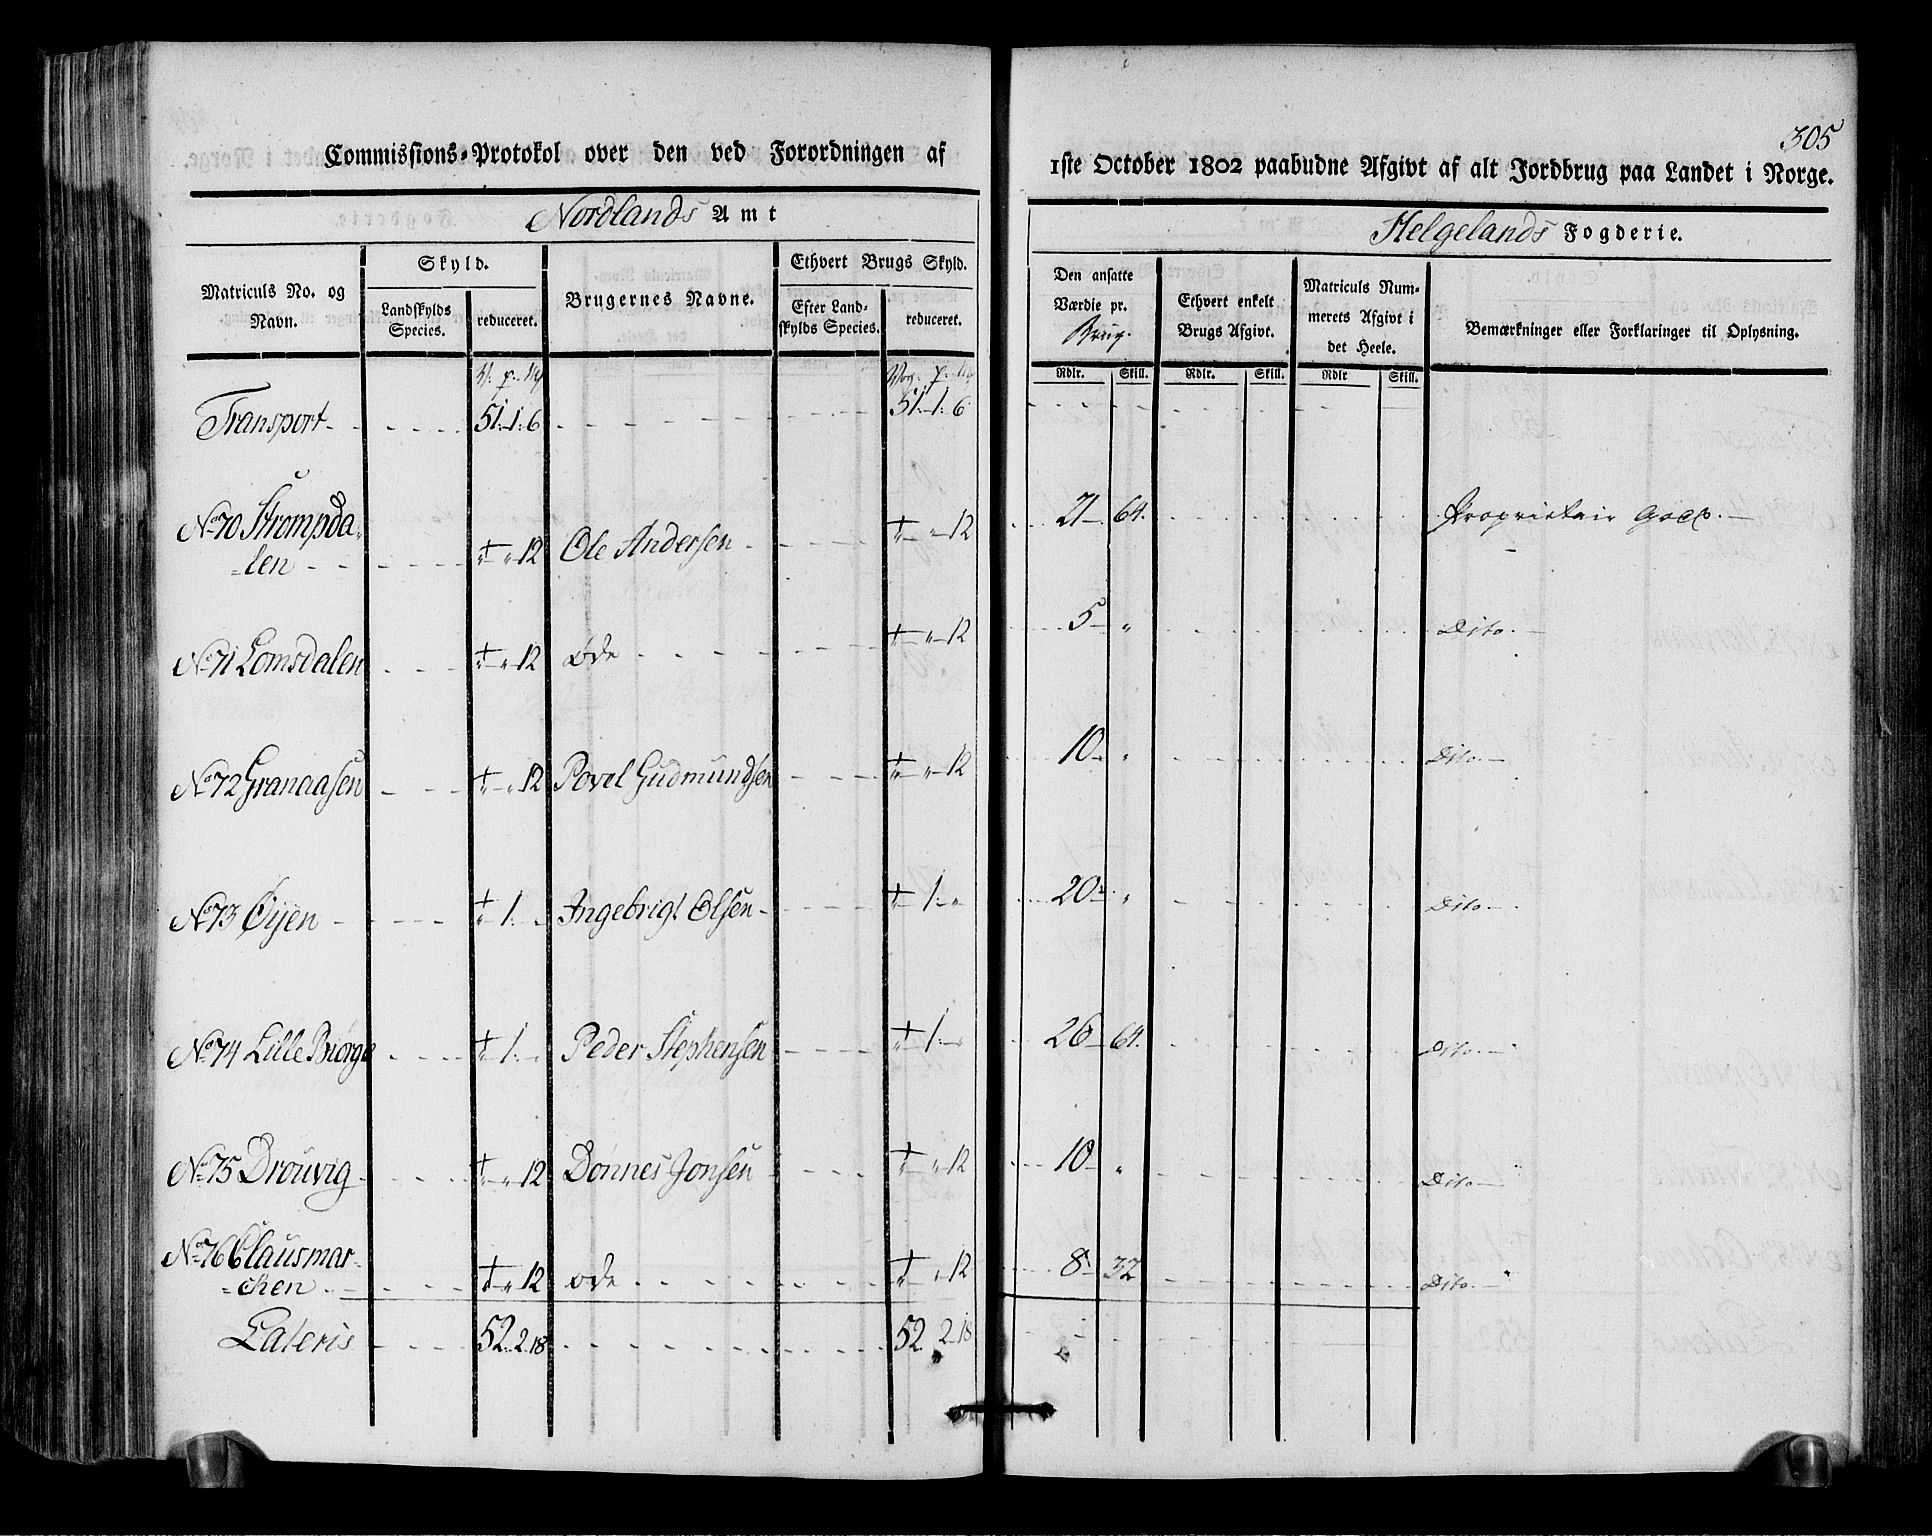 305
Commissions-Protokol over den ved Forordningen af
1ste October 1802 paabudne Afgivt af alt Jordbrug paa Landet i Norge.
Nordlands Amt
Helgelands Fogderie.
Matriculs No. og Navn.
Skyld.
Landskylds Species.
reduceret.
Brugernes Navne.
Ethvert Brugs Skyld.
Efter Landskylds Species.
reduceret.
Den ansatte Værdie pr. Brug.
Ethvert enkelt Brugs Afgivt.
Matriculs Nummerets Afgivt i det Heele.
Bemærkninger eller Forklaringer til Oplysning.
Rdlr. Skill. Rdlr. Skill. Rdlr Skill.
V. p. My Vog. p. My
Transport 51. 1. 6 51. 1. 6
No 70 Strompda-
len 12 Ole Andersen 12 21 64. Proprietair
No 71 Lomsdalen 12 øde 12 5 " Dito.
No 72 Granaasen 12 Povel Gudmundsen 12 10 " Dito
No 73 Öyen 1. Ingebrigt Olsen 1. 20 " Dito
No 74 Lille Biørge 1. Peder Stephensen 1. 26 64. Dito.
No 75 Drouvig 12 Dønnes Jonsen 12 10 " Dito
No 76 Clausmar-
chen 12 øde 12 8 32 Dito.
Lateris 52. 2. 18 52 2 18